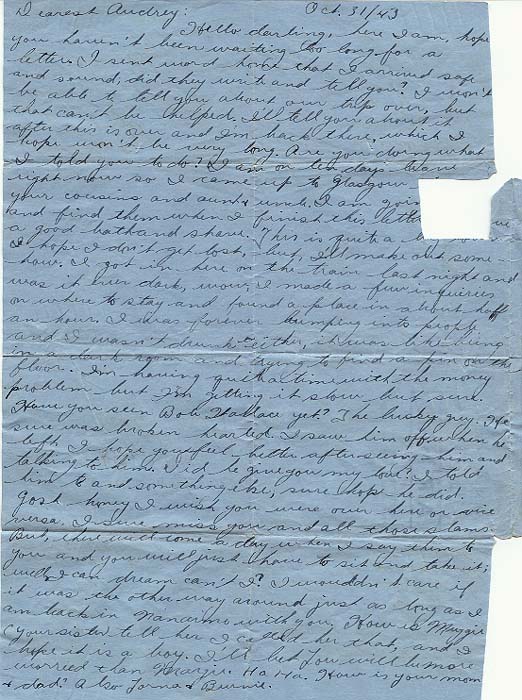 Dearest Audrey: Oct. 31/43
Hello darling, here I am, hope
you haven't been waiting too long for a
letter. I sent word home that I arrived safe
and sound, did they write and tell you? I won't
be able to tell you about our trip over, but
that can't be helped. I'll tell you about it
after this is over and I'm back there, which I
hope won't be very long. Are you doing what
I told you to do? I am on ten days leave
right now so I came up to Glasgow
your cousins and aunt & uncle. I am goin
and find them when I finish this lette
a good bath and shave. This is quite a big
I hope I don't get lost, but, I'll make out some-
how. I got in here on the train last night and
was it ever dark, wow, I made a few inquiries
on where to stay and found a place in about half
an hour. I was forever bumping into people
and I wasn't drunk either, it was like being
in a dark room and trying to find a pin on the
floor. I'm having quite a time with the money
problem but I'm getting it slow but sure.
Have you seen Bob Wallace yet? The lucky guy. He
sure was broken hearted. I saw him off when he
left. I hope you feel better after seeing him and
talking to him. Did he give you my love? I told
him to and something else, sure hope he did.
Gosh honey I wish you were over here or vice
versa. I sure miss you and all those slams.
But, there will come a day when I say them to
you and you will just have to sit and take it;
well I can dream can't I? I wouldn't care if
it was the other way around just as long as I
am back in Nanaimo with you. How is Margie
(your sister) tell her I called her that, and I
hope it is a boy. I'll bet Lou will be more
worried than Margie. Ha Ha. How is your mom
& dad? Also Lorna & Bernie.